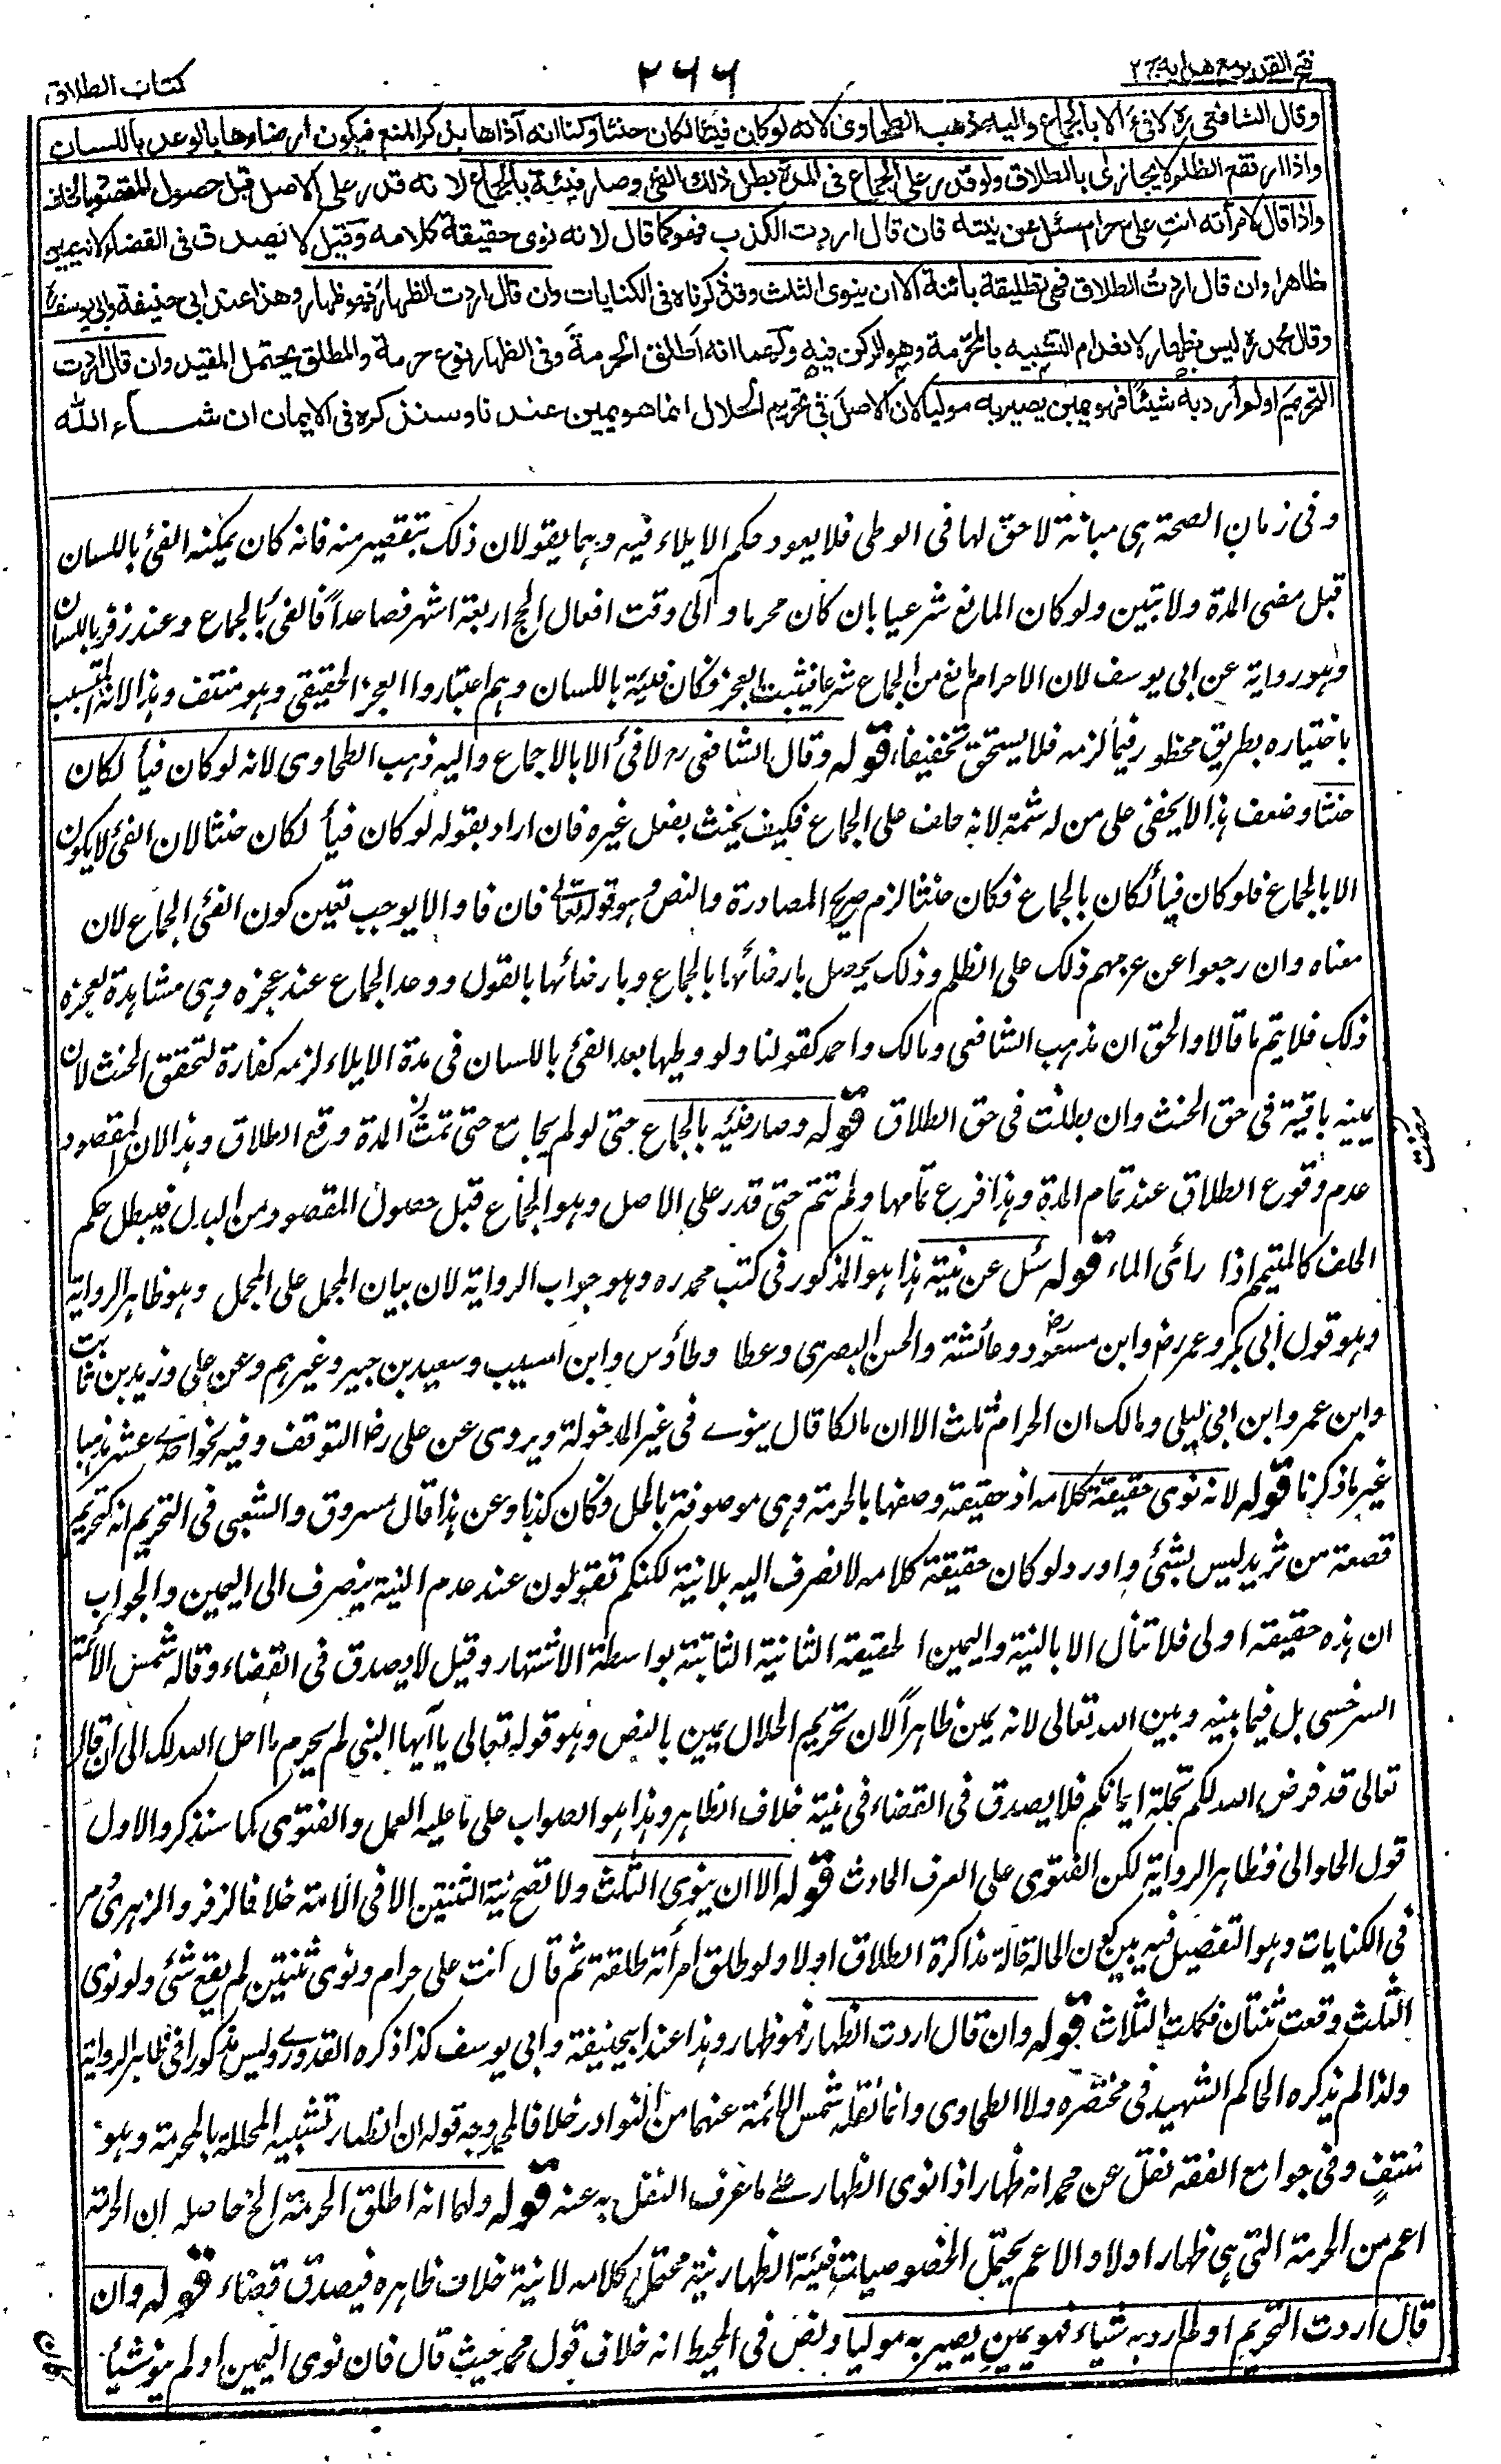 فتح القدير مع هدايه ج٢
٢٦٦
كتاب الطلاق
وقال الشافعى رح لا فئ الا بالجماع واليه ذهب الطحاوى لانه لو كان فيئا لكان حنثا ولنا انه آذاها بذكر المنع فيكون ارضاءها بالوعد باللسان
واذا ارتفع الظلم لا يجازى بالطلاق ولو قدر على الجماع فى المدة بطل ذلك الفئ وصار فيئه بالجماع لانه قدر على الاصل قبل حصول المقصود بالخلف
واذا قال لامرأته انت على حرام سئل عن نيته فان قال اردت الكذب فهو كما قال لانه نوى حقيقة كلامه وقيل لا يصدق فى القضاء لانه يمين
ظاهرا وان قال اردت الطلاق فهى تطليقة بائنة الا ان ينوى الثلث وقد ذكرناه فى الكنايات وان قال اردت الظهار فهو ظهار وهذا عند ابى حنيفة وابى يوسف
وقال محمد رح ليس بظهار لانعدام التشبيه بالمحرمة وهو الركن فيه ولهما انه اطلق الحرمة وفى الظهار نوع حرمة والمطلق يحتمل المقيد وان قال اردت
التحريم او لم أرد به شيئا فهو يمين يصير به موليا لان الاصل فى تحريم الحلال انما هو يمين عندنا وسنذكره فى الايمان ان شاء الله
وفى زمان الصحة هى مبانة لا حق لها فى الوطى فلا يعود حكم الايلاء فيه وهما يقولان ذلك بتقصير منه فانه كان يمكنه الفئ باللسان
قبل مضى المدة ولا تبين ولو كان المانع شرعيا بان كان محرما و الى وقت افعال الحج اربعة اشهر فصاعدا فالفئ بالجماع وعند زفر باللسان
وهو رواية عن ابى يوسف لان الاحرام مانع من الجماع شرعا فيثبت العجز فكان فيئه باللسان وهم اعتبروا العجز الحقيقى وهو منتف وهذا لانه المتسبب
باختياره بطريق محظور فيما لزمه فلا يستحق تخفيفا قوله وقال الشافعى رح لا فئ الا بالاجماع واليه ذهب الطحاوى لانه لو كان فيأ لكان
حنثا وضعف هذا لا يخفى على من له شمة لانه حلف على الجماع فكيف يحنث بفعل غيره فان اراد بقوله لو كان فيأ لكان حنثا لان الفئ لا يكون
الا بالجماع فلو كان فيأ لكان بالجماع فكان حنثا لزم صريح المصادرة والنص وهو قوله تعالى فان فاوا لا يوجب تعين كون الفئ الجماع لان
معناه وان رجعوا عن عزمهم ذلك على الظلم وذلك يحصل بارضائها بالجماع وبارضائها بالقول ووعد الجماع عند عجزه وهى مشاهدة لعجزه
ذلك فلا يتم ما قالا والحق ان مذهب الشافعى ومالك واحمد كقولنا ولو وطيها بعد الفئ باللسان فى مدة الايلاء لزمه كفارة لتحقق الحنث لان
يمينه باقية فى حق الحنث وان بطلت فى حق الطلاق قوله وصار فيئه بالجماع حتى لو لم يجامع حتى تمت المدة وقع الطلاق وهذا لان المقصود
عدم وقوع الطلاق عند تمام المدة وهذا فرع تمامها ولم تتم حتى قدر على الاصل وهو الجماع قبل حصول المقصود من البدل فيبطل حكم
الحلف كالمتيمم اذا رأى الماء قوله سئل عن نيته هذا هو المذكور فى كتب محمد ره وهو جواب الرواية لان بيان المجمل على المجمل وهو ظاهر الرواية
وهو قول ابى بكر وعمر رض وابن مسعود رض وعائشة والحسن البصرى وعطا وطاؤس وابن المسيب وسعيد بن جبير وغيرهم وعن على وزيد بن ثابت
وابن عمر وابن ابى ليلى ومالك ان الحرام ثلث الا ان مالكا قال ينوى فى غير المدخولة ويروى عن على رض التوقف وفيه نحو احدى عشر مذهبا
غير ما ذكرنا قوله لانه نوى حقيقة كلامه اذ حقيقته وصفها بالحرمة وهى موصوفة بالحل فكان كذبا وعن هذا قال مسروق والشعبى فى التحريم انه كتحريم
قصعة من ثريد ليس بشئ واورد لو كان حقيقة كلامه لانصرف اليه بلا نية لكنكم تقولون عند عدم النية ينصرف الى اليمين والجواب
ان هذه حقيقة اولى فلا تنال الا بالنية واليمين الحقيقة الثانية الثابتة بواسطة الاشتهار وقيل لا يصدق فى القضاء وقاله شمس الائمة
السرخسى بل فيما بينه وبين الله تعالى لانه يمين ظاهرا لان تحريم الحلال يمين بالنص وهو قوله تعالى يا ايها النبى لم تحرم ما احل الله لك الى ان قال
تعالى قد فرض الله لكم تحلة ايمانكم فلا يصدق فى القضاء فى نية خلاف الظاهر وهذا هو الصواب على ما عليه العمل والفتوى كما سنذكر والاول
قول الحلوانى فظاهر الرواية لكن الفتوى على العرف الحادث قوله الا ان ينوى الثلث ولا تصح نية الثنتين الا فى الامة خلافا لزفر والزهرى مر
فى الكنايات وهو التفصيل فيه بين كون الحالة حالة مذاكرة الطلاق اولا ولو طلق امرأته طلقة ثم قال انت على حرام ونوى ثنتين لم يقع شئ ولو نوى
الثلث وقعت ثنتان فكملت الثلاث قوله وان قال اردت الظهار فهو ظهار وهذا عند ابيحنيفة وابى يوسف كذا ذكره القدورى وليس مذكورا فى ظاهر الرواية
ولذا لم يذكره الحاكم الشهيد فى مختصره ولا الطحاوى وانما نقله شمس الائمة عنهما من النوادر خلافا لمحمد وجه قوله ان الظهار تشبيه المحللة بالمحرمة وهو
منتف وفى جوامع الفقه نقل عن محمد انه ظهار اذا نوى الظهار على ما عرف النقل به عنه قوله ولهما انه اطلق الحرمة الخ حاصله ان الحرمة
اعم من الحرمة التى هى ظهار اولا والاعم يحتمل الخصوصيات فنية الظهار نية محتمل كلامه لا نية خلاف ظاهره فيصدق قضاء قوله وان
قال اردت التحريم او لم ارد به شياء فهو يمين يصير به موليا ونص فى المحيط انه خلاف قول محمد حيث قال فان نوى اليمين او لم ينو شيئا